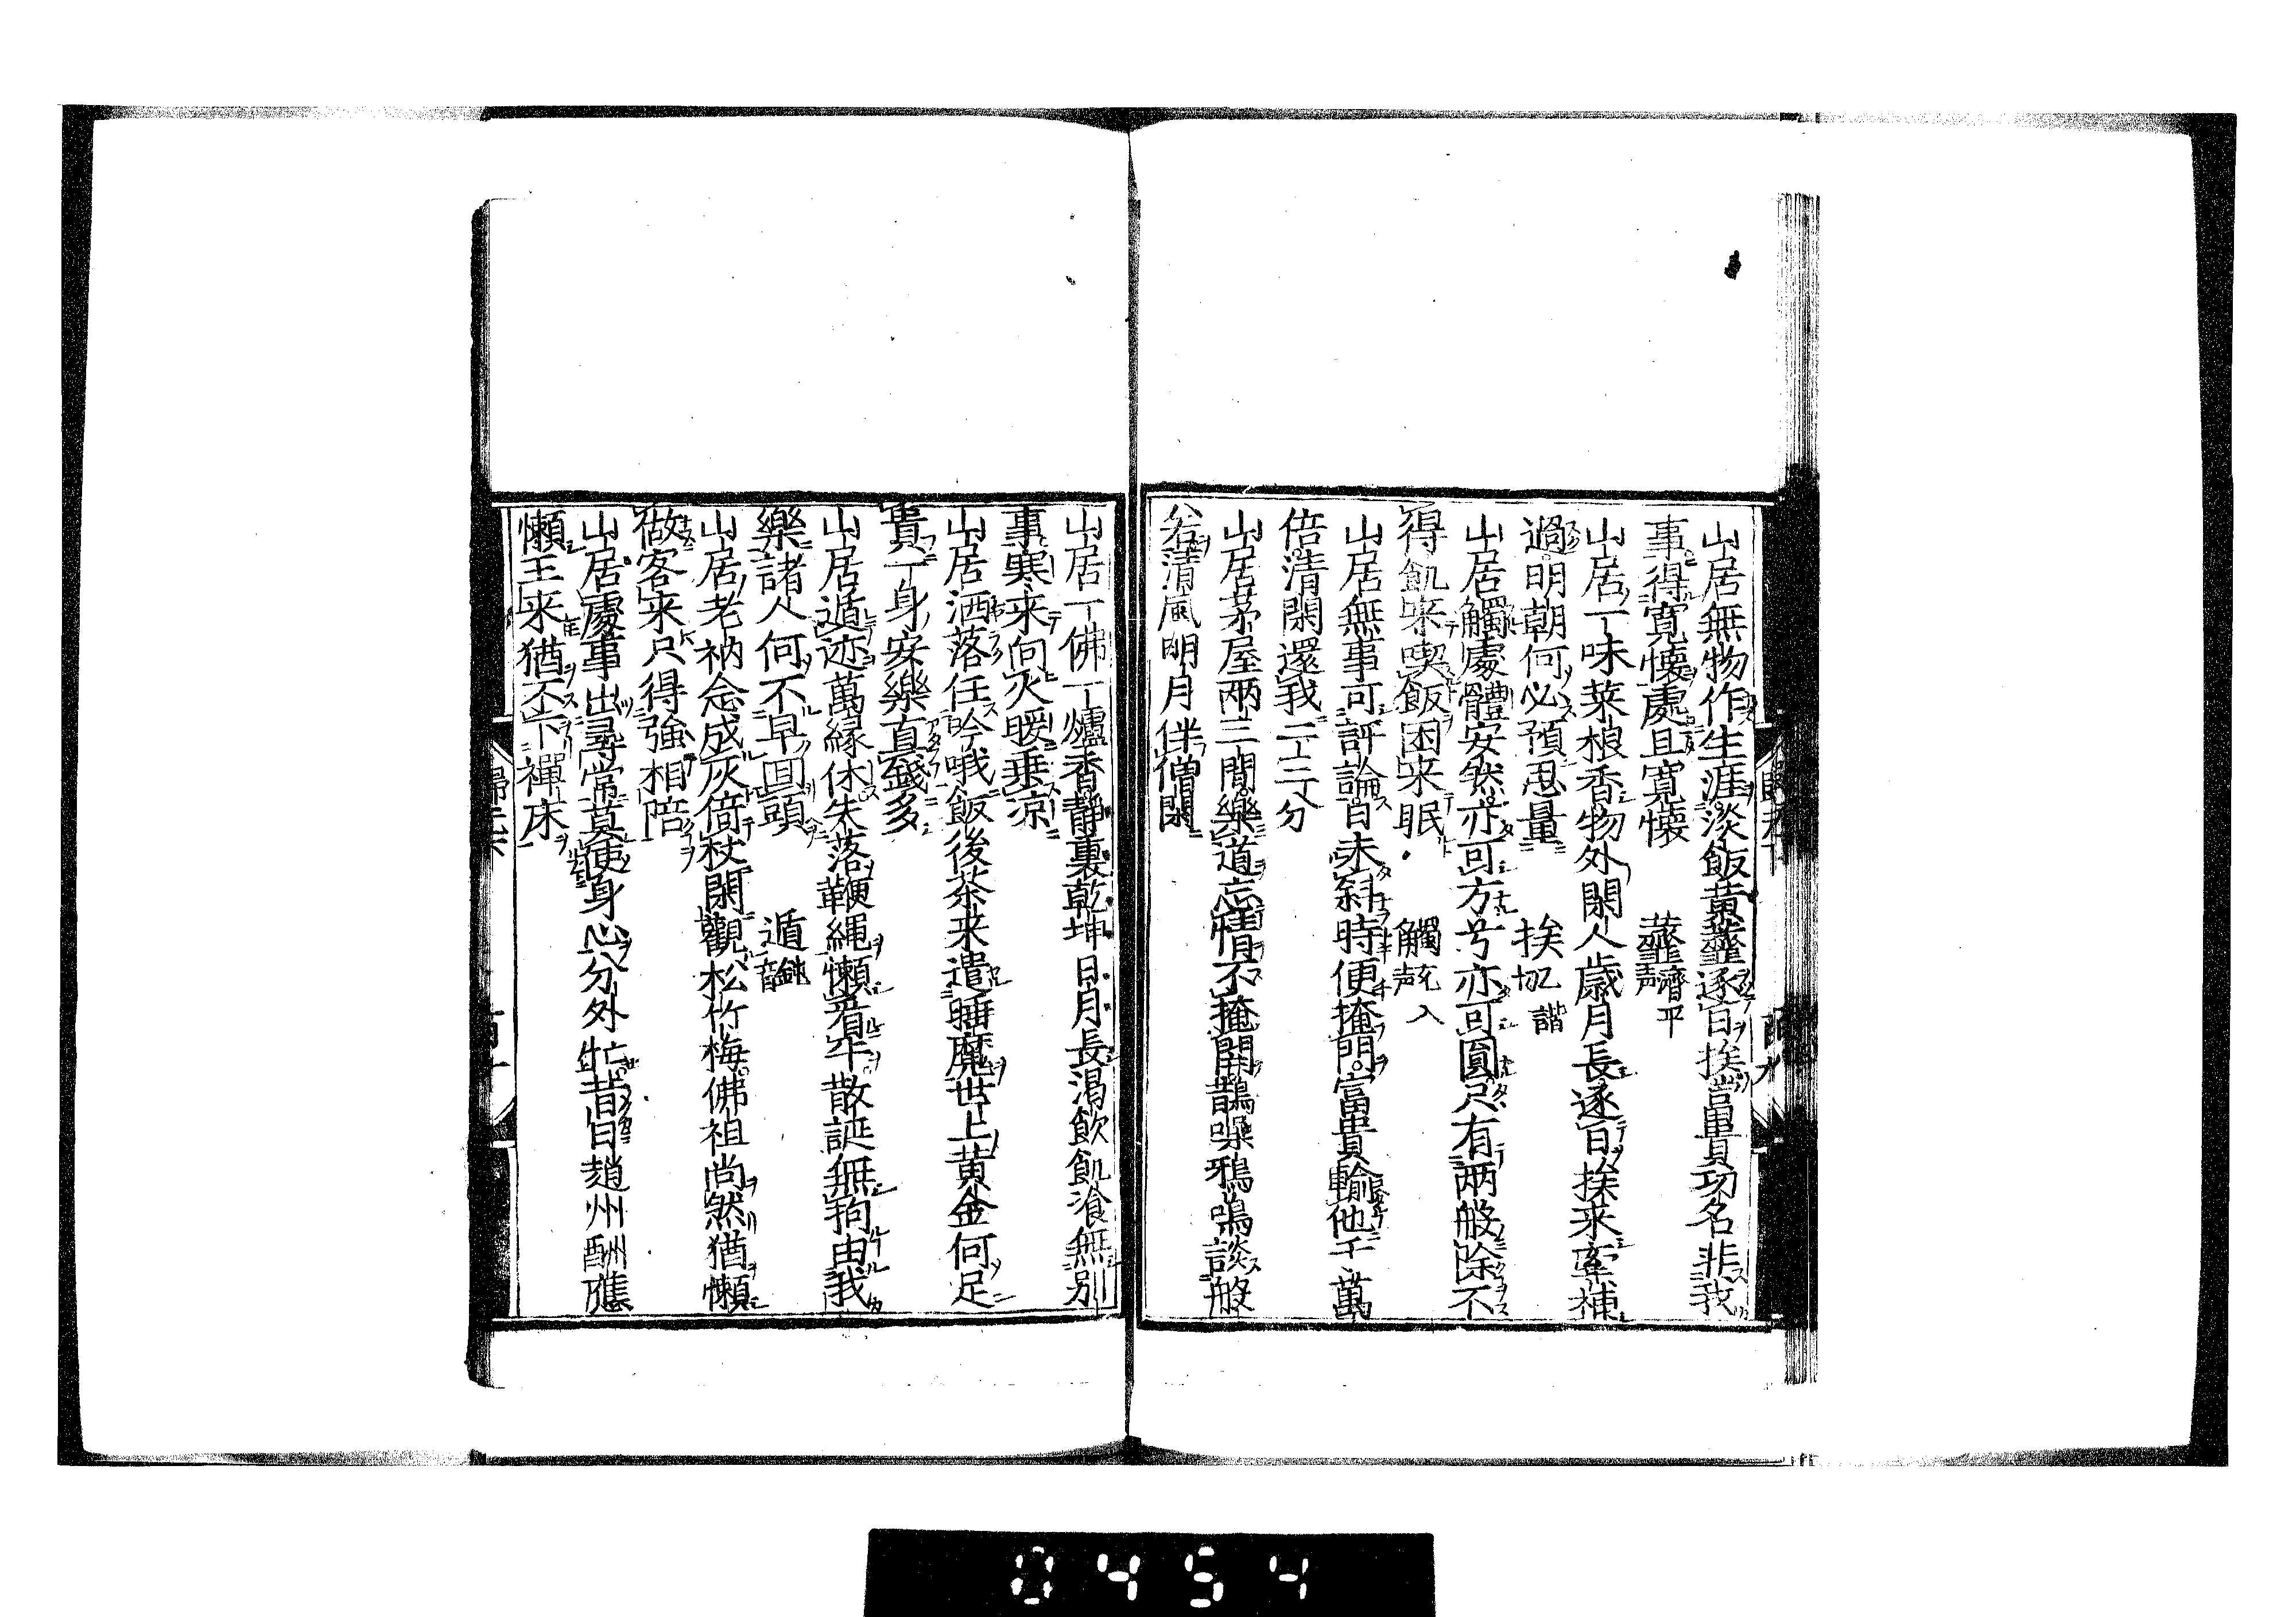 山居無物作生涯淡飯黄虀逐日挨豈貴功名非我
事得寛懷處且寛懷　虀濟平声
山居一味菜根香物外閑人歳月長逐日挨来牽補
過明朝何必預思量　挨切諧
山居觸處體安然亦可方兮亦可圓只有兩般除不
得飢来喫飯困来眠　觸入声
山居無事可評論日未斜時便掩門富貴輸他千萬
倍清閑還我二三分
山居茅屋兩三間樂道忘情不掩関鵲噪鴉鳴談般
若清風明月伴僧閑
山居一佛一爐香静裏乾坤日月長渇飲飢飡無別
事寒来向火暖乗凉
山居洒落任吟哦飯後茶来遣睡魔世上黄金何足
貴一身安樂直錢多
山居遁迹萬縁休失落鞭縄懶看牛散誕無拘由我
樂諸人何不早回頭　遁音鈍
山居老衲念成灰倚杖閑觀松竹梅佛祖尚然猶懶
做客来只得強相陪
山居處事出尋常莫使身心分外忙昔日趙州酬應
懶王来猶不下禪床
0454